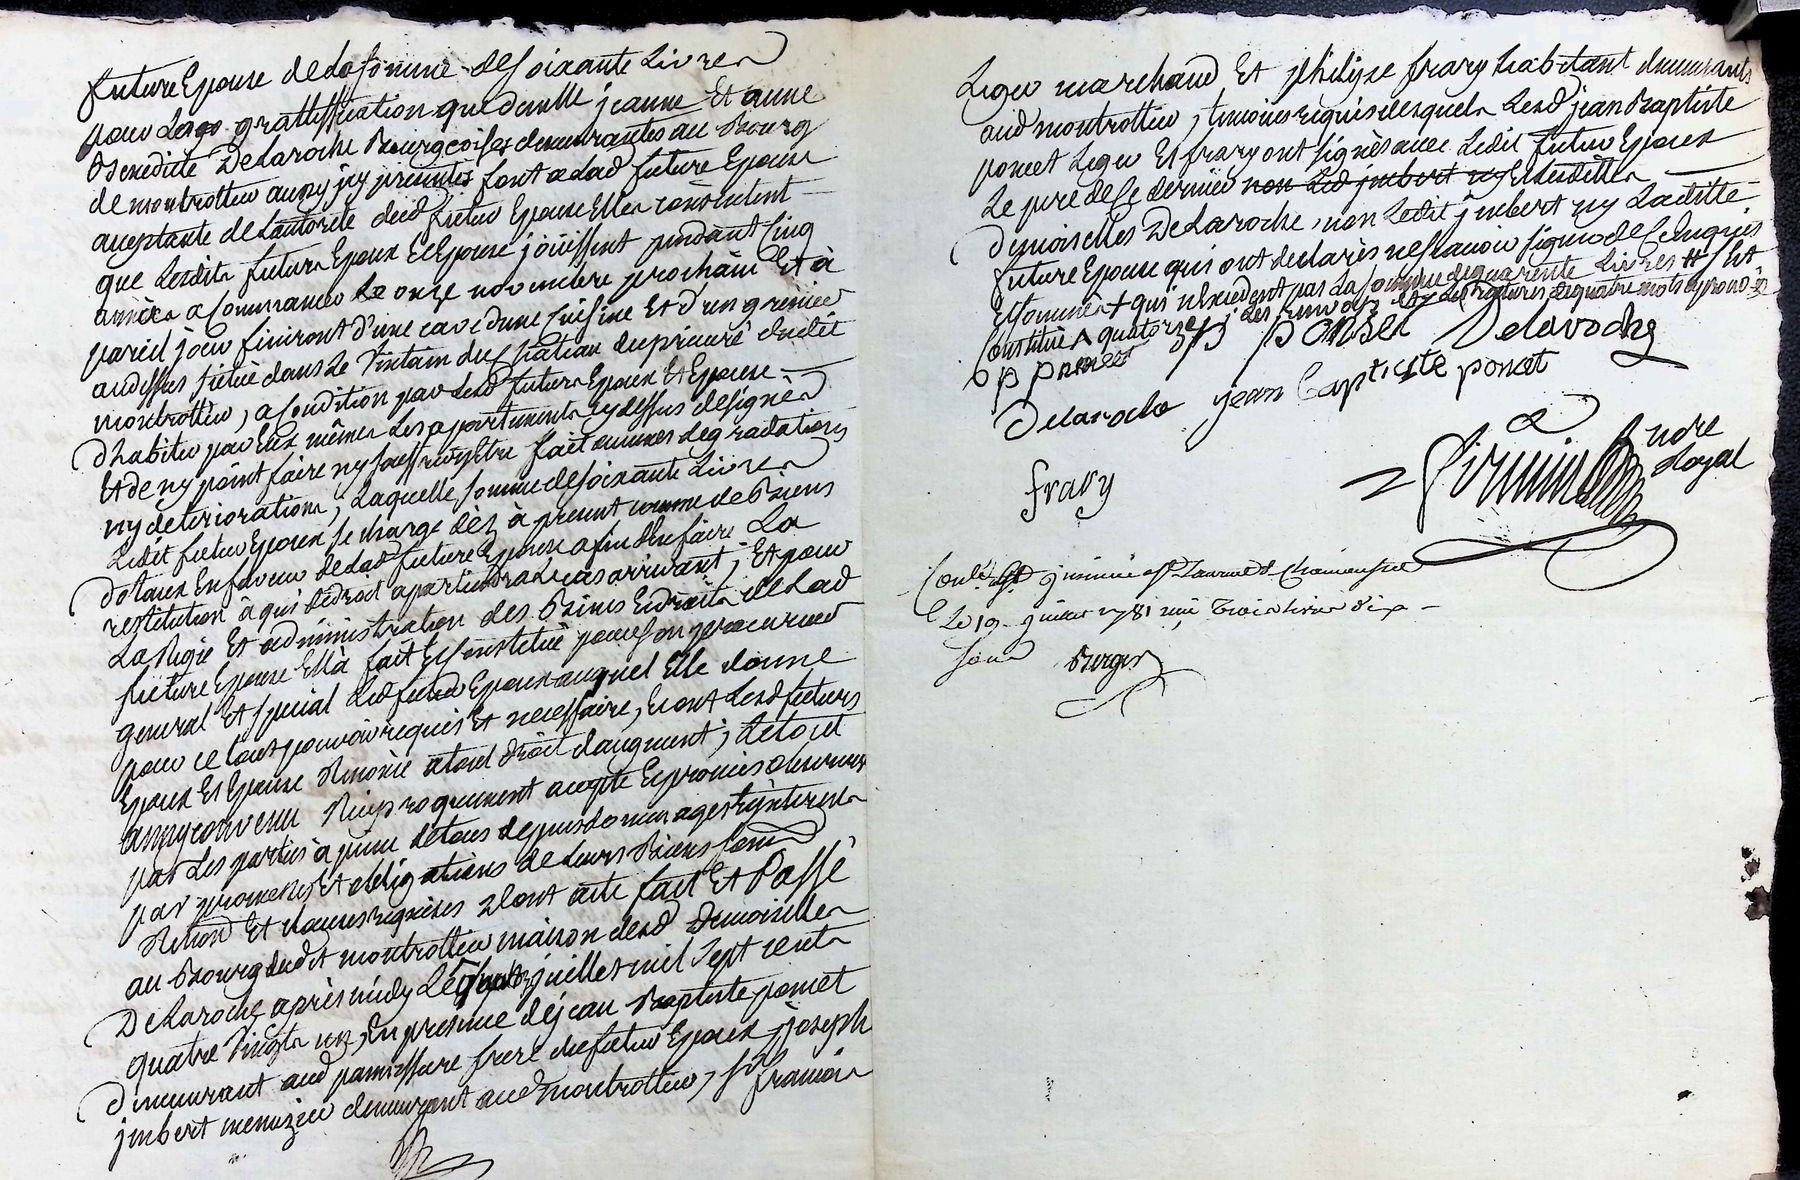 future Epouse de la somme de soixante Livres
pour gratiffication que demlle jeanne Et anne
Benedicte De Laroche Bourgeoises demeurantes au Bourg
de montrottier aussy jcy presentes font a lad future Epouse
aceptante de l'autorité dud futur Epoux Elles consentent
que Lesdits futurs Epoux Et Epouse joüissent pendant Cinq
années a Commancer Le onze novembre prochain Et à
pareil jour finiront d'une cave d'une Cuisine Et d'un grenier
au dessus situé dans Le Vintain du Chatiau du prieuré dudit
montrottier, a Condition par Lesd futurs Epoux Et Epouse
d'habiter par Eux mêmes Les apartements cy dessus designés
Et de ny point faire ny souffrir Etre fait aucunes degradations
ny deteriorations, Laquelle somme de soixante Livres
Ledit futur Epoux se charge dès à present comme de Biens
dotaux En faveur de lad future Epouse afin d'En faire La
restitution à qui de droit apartiendra Le cas arrivant; Et pour
La Regie Et administration des Biens Et droits de Lad
future Epouse Ella fait Et Constitué pour son procureur
general Et special Led futur Epoux auquel Elle donne
pour ce tout pouvoir requis Et necessaire, Et ont Lesd futurs
Epoux Et Epouse Renoncé a tout droit d'augment; De tout
ainsy convenu Reciproquement acepté Et promis observer
par Les parties à peine de tous depens dommages Et jnterests
par promesses Et obligations de Leurs Biens soum
Renon Et clauses requises Dont acte fait Et Passé
au Bourg dudit montrottier maison desd Demoiselles
De Laroche après midy Le juillet mil sept cents
quatre Vingts un, En presence de jean Baptiste poncet
demeurant aud frere du futur Epoux, joseph
jmbert menuzier demeurant aud montrottier, sr françois
Liger marchand Et philipe frary habitant demeurants
aud montrottier, temoins requis desquels Lesd jean Baptiste
poncet Liger Et frary ont signés avec Ledit futur Epoux
Le pere de Ce dernier non Led jmbert ny Et Lesdittes
Demoiselles De Laroche, non Ledit jmbert ny Laditte
future Epouse qui ont declarés ne sçavoir signer de Ce Enquis
Et sommés + qui n'Excedent pas La somme de quarente Livres # Et
Constitué ^ quatorze, Les renvois Et Les ratures de quatre mots aprouvés
p poncet ponset Delaroche
Delaroche jean baptiste ponset
frary
nore
Royal
Le 19 1781 Trois Livres dix
sous